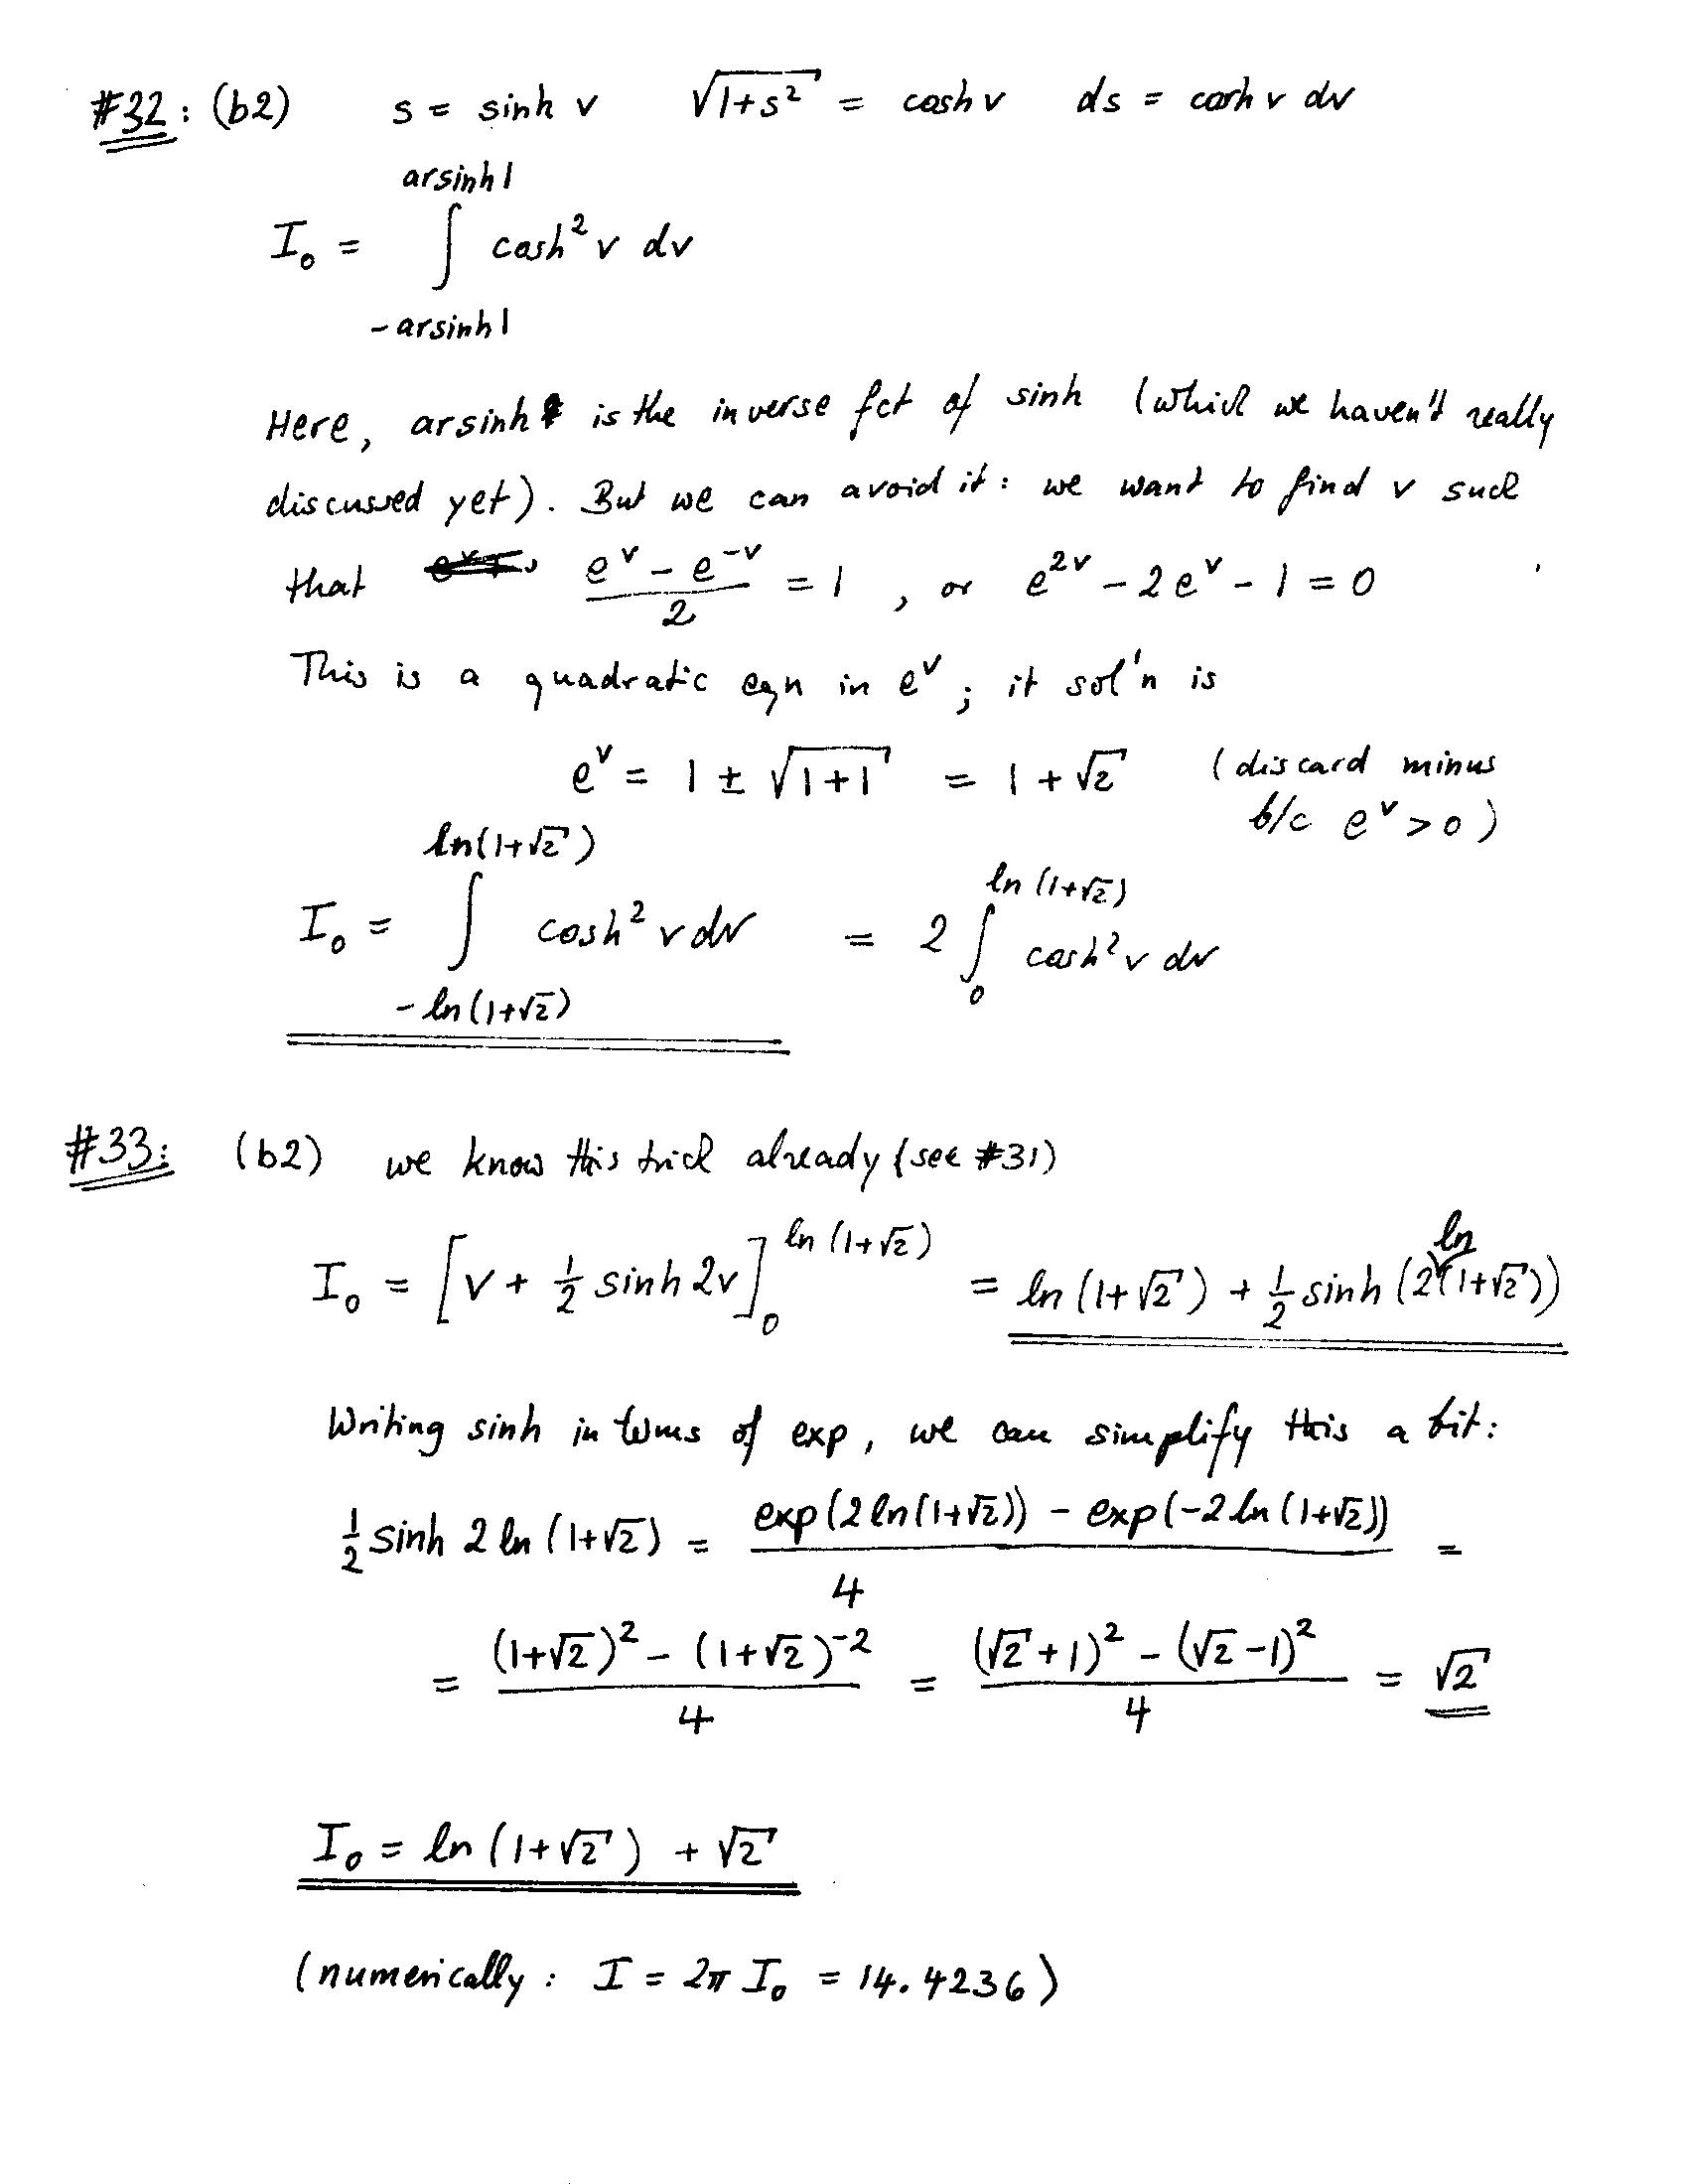 #32: (b2) s = sinh v √(1+s²) = cosh v ds = cosh v dv
arsinh 1
I₀ = ∫ cosh² v dv
-arsinh 1
Here, arsinh is the inverse fct of sinh (which we haven't really
discussed yet). But we can avoid it: we want to find v such
that (e^v - e^-v)/2 = 1, or e^2v - 2e^v - 1 = 0
This is a quadratic eqn in e^v; it sol'n is
e^v = 1 ± √(1+1) = 1 + √2 (discard minus
b/c e^v > 0)
ln(1+√2) ln(1+√2)
I₀ = ∫ cosh² v dv = 2 ∫ cosh² v dv
-ln(1+√2) 0
#33: (b2) we know this trick already (see #31)
I₀ = [v + ½ sinh 2v]₀^ln(1+√2) = ln(1+√2) + ½ sinh(2 ln(1+√2))
Writing sinh in terms of exp, we can simplify this a bit:
½ sinh 2 ln(1+√2) = (exp(2 ln(1+√2)) - exp(-2 ln(1+√2)))/4 =
= ((1+√2)² - (1+√2)^-2)/4 = ((√2+1)² - (√2-1)²)/4 = √2
I₀ = ln(1+√2) + √2
(numerically: I = 2π I₀ = 14.4236)